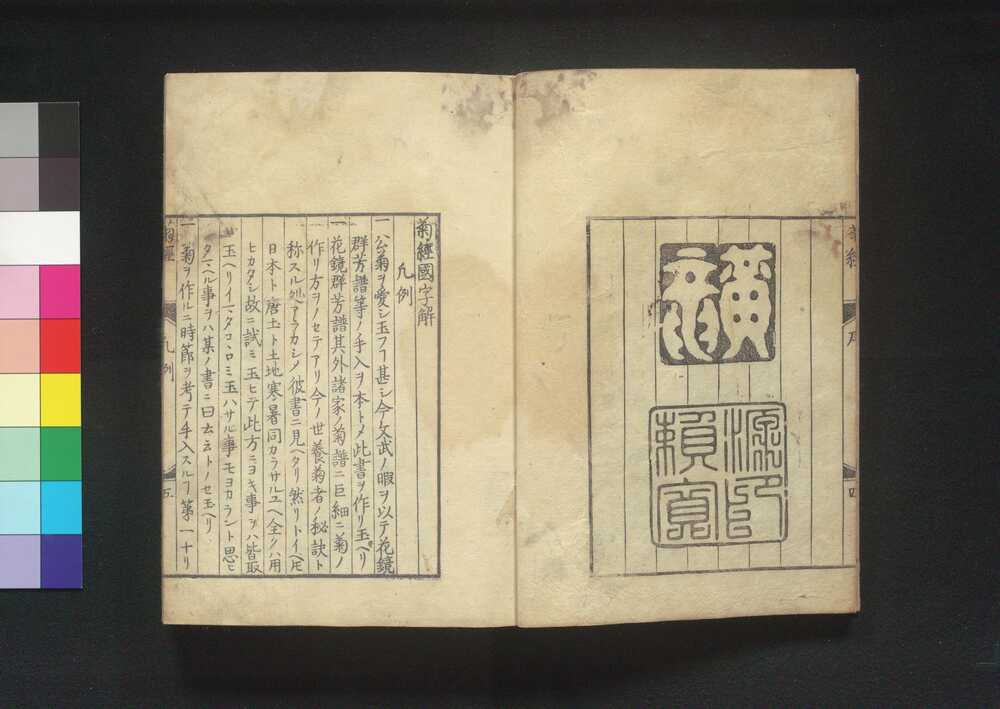 菊經
序
四
源印
賴寛
菊經國字解
凡例
一公菊ヲ愛シ玉フヿ甚シ今文武ノ暇ヲ以テ花鏡
群芳譜等ノ手入ヲ本トメ此書ヲ作リ玉ヘリ
一花鏡群芳譜其外諸家ノ菊譜ニ巨細ニ菊ノ
作リ方ヲノセテアリ今ノ世養菊者ノ秘訣ト
称スル処アラカシメ彼書ニ見ヘタリ然リトイヘ𪜈
日本ト唐土ト土地寒暑同カラサルユヘ全クハ用
ヒカタシ故ニ試ミ玉ヒテ此方ニヨキ事ヲハ皆取
玉ヘリイマタコヽロミ玉ハサル事モヨカラント思ヒ
タマヘル事ヲハ某ノ書ニ曰云云トノセ玉ヘリ
一菊ヲ作ルニ時節ヲ考テ手入スルヿ第一ナリ
菊經
凡例
五